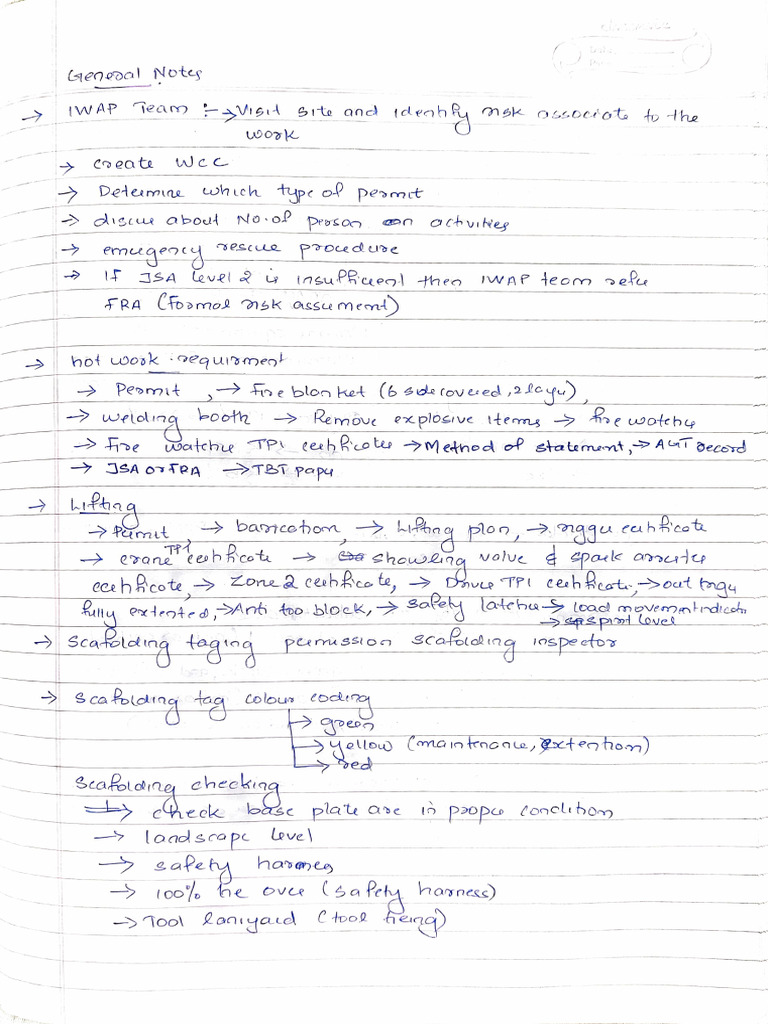 General Notes
→ IWAP Team :- → Visit site and identify risk associate to the
work
→ create WCC
→ Determine which type of permit
→ discue about No. of person on activities
→ emergency rescue procedure
→ If JSA level 2 is insufficient then IWAP team refer
FRA (Formal risk assument)
→ hot work requirment
→ Permit, → Fire blanket (6 side covered, 2 layer),
→ welding booth → Remove explosive items → fire watcher
→ Fire watcher TPI certificates → Method of statement, → AGT record
→ JSA or FRA → TBT paper
→ Lifting
→ Permit, → barication, → Lifting plan, → rigger certificate
→ crane TPI certificate → showling valve & spark arrester
certificate, → Zone 2 certificate, → Driver TPI certificate, → out triger
fully extented, → Anti too block, → safety latcher → load movement indicator
→ spirit level
→ scafolding taging permission scafolding inspector
→ scafolding tag colour coding
→ green
→ yellow (maintenance, extention)
→ red
scafolding checking
→ check base plate are in proper condition
→ landscape level
→ safety harness
→ 100% tie over (safety harness)
→ Tool laniyard (tool tieing)